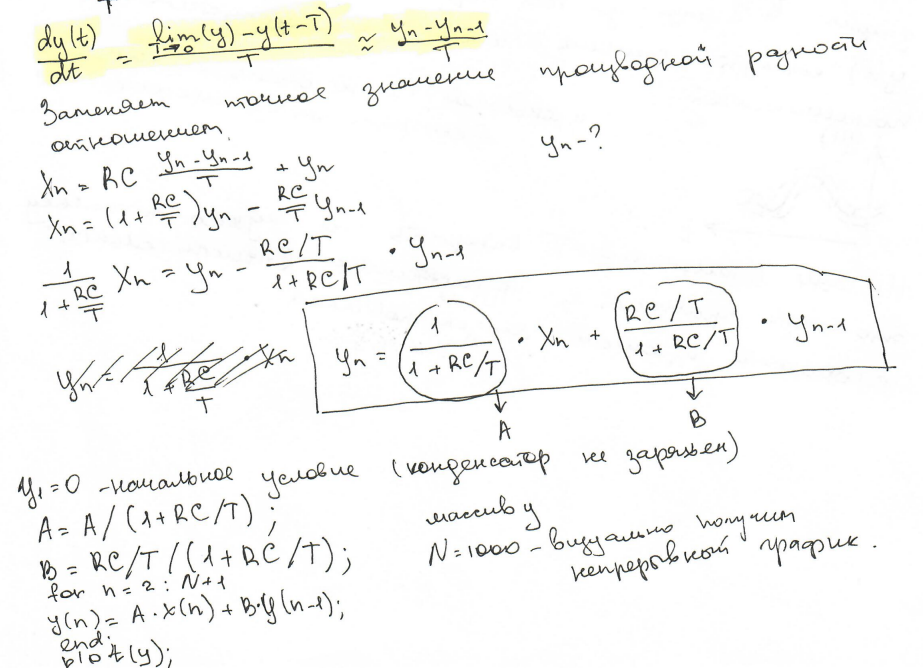 dy(t)/dt = lim T→0 (y)-y(t-T)/T ≈ yn-yn-1/T
Заменяет точное значение производной разности
отношением.
yn-?
Xn = RC yn-yn-1/T + yn
Xn = (1+RC/T)yn - RC/T yn-1
1/(1+RC/T) Xn = yn - RC/T/(1+RC/T) · yn-1
yn = 1/(1+RC/T) · Xn
yn = 1/(1+RC/T) · Xn + RC/T/(1+RC/T) · yn-1
A B
y1=0 -начальное условие (конденсатор не заряжен)
A = A/(1+RC/T);
B = RC/T/(1+RC/T);
for n=2:N+1
y(n)= A·x(n)+B·y(n-1);
end;
plot(y);
массив y
N=1000 - визуально получим
непрерывный график.